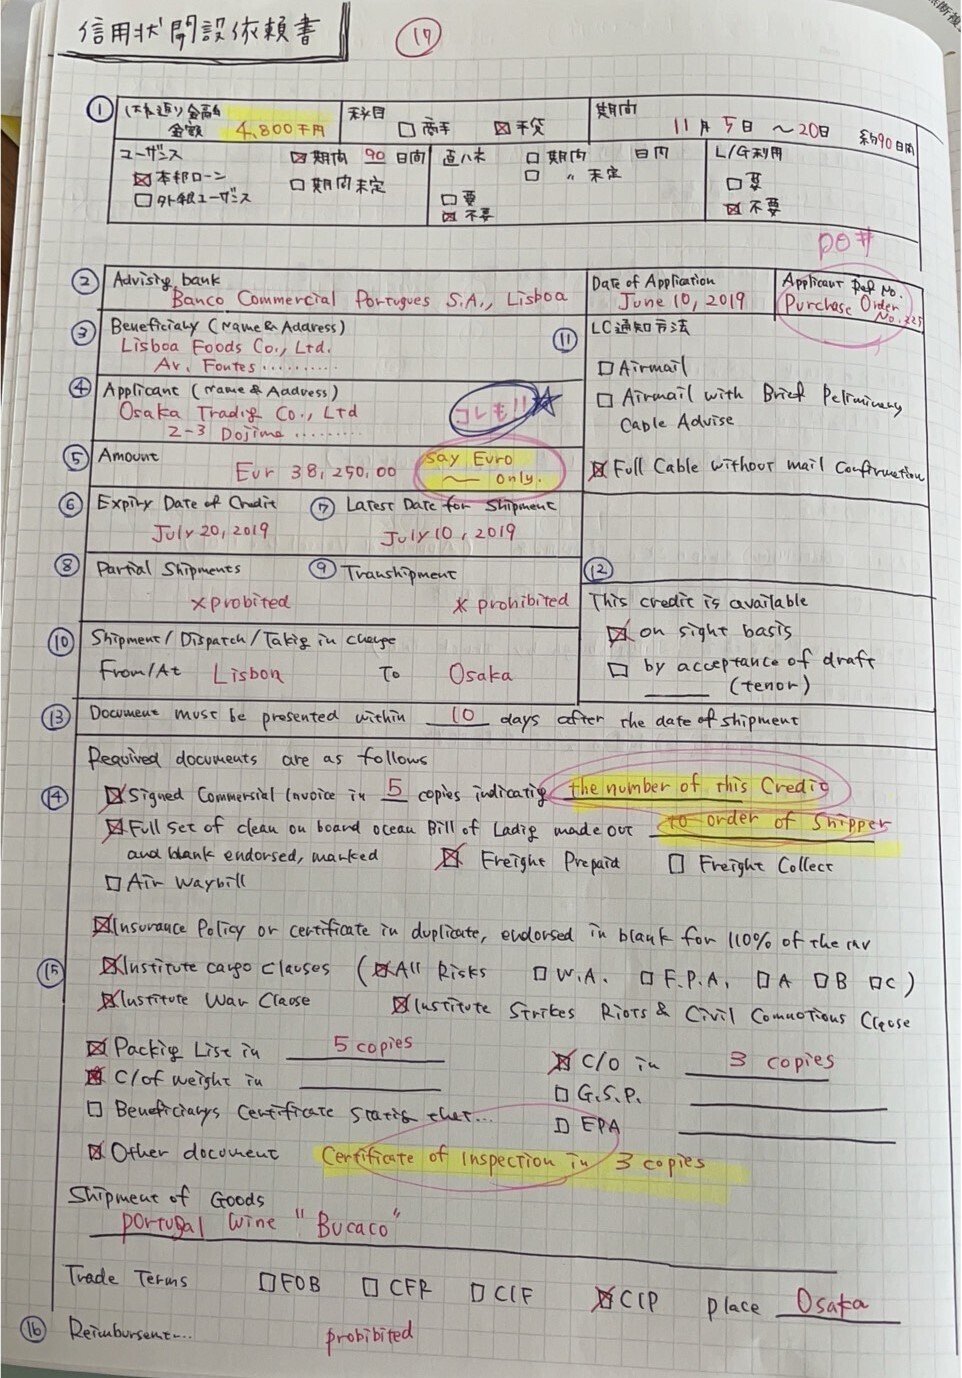 信用状開設依頼書
17
① 金額 4,800千円 科目 □商手 ☒手貸 期間 11月5日 ～20日 約90日間
ユーザンス ☒期間 90日間 □期間 日間 L/G利用
☒本邦ローン □期間未定 □ 〃 未定 □要
□外銀ユーザンス □要 ☒不要
☒不要
PO#
② Advisig bank Date of Application Applicant Ref No.
Banco Commercial Portugues S.A., Lisboa June 10, 2019 Purchase Order No. 225
③ Beneficiary (Name & Address) ⑪ LC通知方法
Lisboa Foods Co., Ltd.
Av. Fontes.......... □Airmail
④ Applicant (Name & Aadress) コレも!! □Airmail with Brief Peliminary
Osaka Tradig Co., Ltd Cable Advise
2-3 Dojima.........
⑤ Amount say Euro ☒Full Cable without mail Confirmation
Eur 38,250,00 ～ only.
⑥ Expiry Date of Credit ⑦ Latest Date for Shipment
July 20, 2019 July 10, 2019
⑧ Partial Shipments ⑨ Transhipment ⑫
×probited × prohibited This credit is available
⑩ Shipment/Dispatch/Takig in charge ☒ on sight basis
From/At Lisbon To Osaka □ by acceptance of draft
(tenor)
⑬ Document must be presented within 10 days after the date of shipment
Required documents are as follows
⑭ ☒Signed Commercial Invoice in 5 copies indicatig the number of this Credit
☒Full set of clean on board ocean Bill of Ladig made out to order of Shipper
and blank endorsed, marked ☒ Freight Prepaid □ Freight Collect
□Air Waybill
☒Insurance Policy or certificate in duplicate, endorsed in blank for 110% of the inv
⑮ ☒Institute cargo clauses (☒All Risks □W.A. □F.P.A. □A □B □C)
☒Institute War Claose ☒Institute Strikes Riots & Civil Commotions Claose
☒Packig List in 5 copies ☒C/O in 3 copies
☒C/of weight in □G.S.P.
□Beneficiarys Certificate statig that... □EPA
☒Other document Certificate of Inspection in 3 copies
Shipment of Goods
portugal wine "Bucaco"
Trade Terms □FOB □CFR □CIF ☒CIP place Osaka
⑯ Reimbursent... probibited